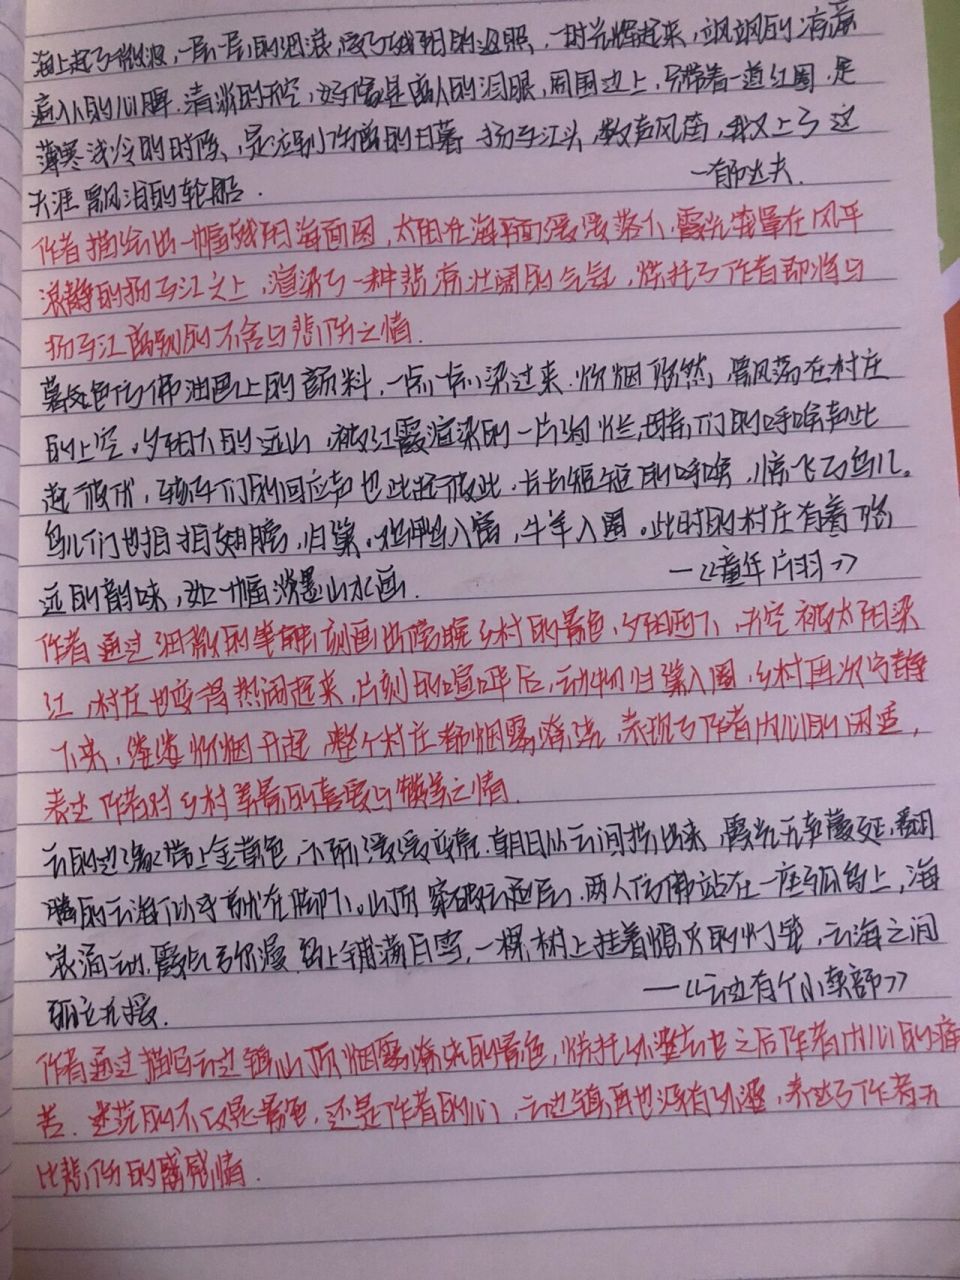 海上起了微波,一层一层的细浪,受了残阳的返照,一时光辉起来,飒飒的凉意
入的心脾.清淡的天空,好像是离人的泪眼,周围边上,只带着一道红圈.是
薄寒浅冷的时候,是泣别伤离的日暮.扬子江头,数声风笛,我又上了这
天涯飘泊的轮船.
一郁达夫.
作者描绘出一幅残阳海面图,太阳在海平面缓缓落下,霞光笼罩在风平
浪静的扬子江之上,渲染了一种悲凉壮阔的气氛,烘托了作者即将与
扬子江离别的不舍与悲伤之情.
暮色仿佛油画上的颜料,一点一点染过来.炊烟依然,飘荡在村庄
的上空,夕阳下的远山,被红霞渲染的一片绚烂,母亲们的呼唤声此
起彼伏,孩子们的回应声也此起彼此.长长短短的呼唤,惊飞了鸟儿。
鸟儿们也拍拍翅膀,归巢。鸡鸭入窝,牛羊入圈.此时的村庄有着悠
远的韵味,如一幅淡墨山水画.
—《童年片羽》
作者通过细微的笔触刻画出傍晚乡村的景色,夕阳西下,天空被太阳染
红,村庄也变得热闹起来,片刻的喧哗后,动物归巢入圈,乡村再次宁静
下来,缕缕炊烟升起,整个村庄都烟雾缭绕,表现了作者内心的闲适,
表达作者对乡村美景的喜爱与赞美之情.
云的边缘带上金黄色,不断缓缓变亮.朝日从云间挤出来,霞光无声蔓延,翻
腾的云海似乎就在脚下。山顶穿破云层,两人仿佛站在一座孤岛上,海
浪涌动,霞气弥漫.岛上铺满白雪,一棵树上挂着熄灭的灯笼,云海之间
孤立无援.
—《云边有个小卖部》
作者通过描写云边镇山顶烟雾缭绕的景色,烘托外婆去世之后作者内心的痛
苦.迷茫的不仅是景色,还是作者的心,云边镇再也没有外婆,表达了作者无
比悲伤的感情.